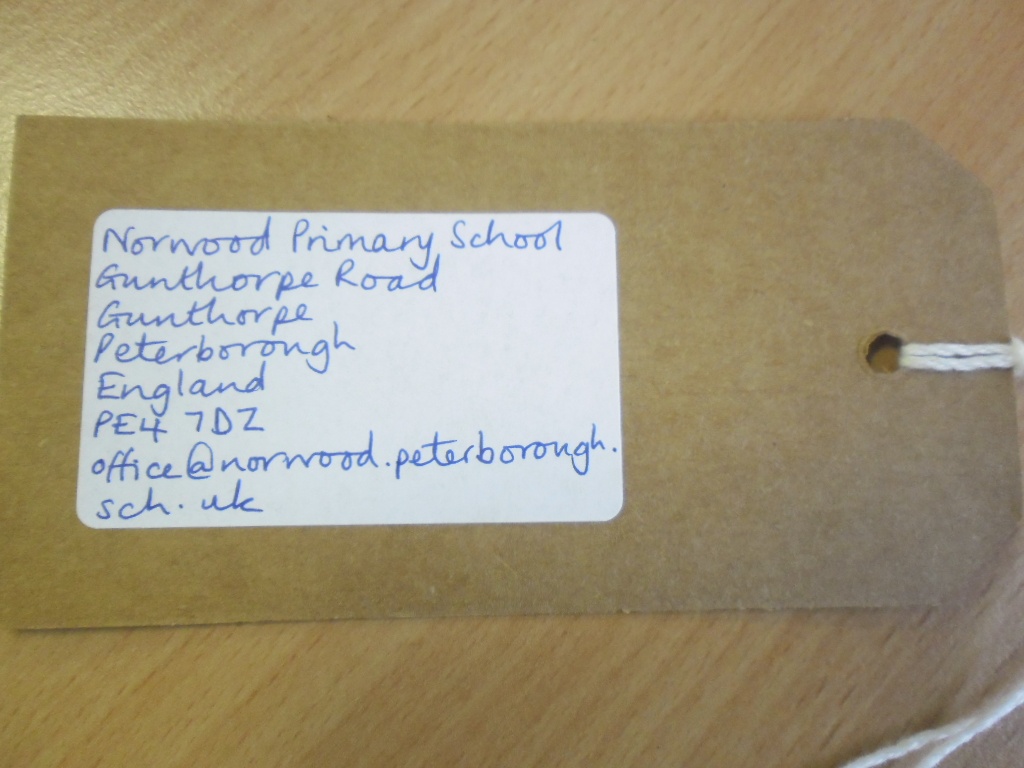 Norwood Primary School
Gunthorpe Road
Gunthorpe
Peterborough
England
PE4 7DZ
office@norwood.peterborough.
sch.uk